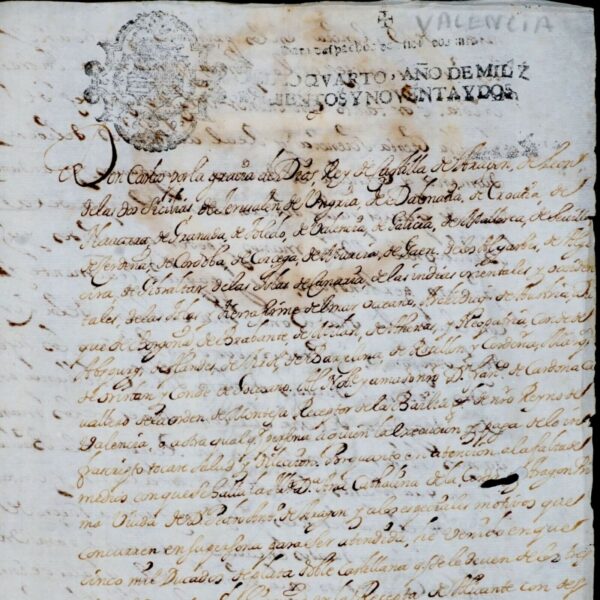 VALENCIA
Para despachos de oficio dos mrs.
SELLO QVARTO, AÑO DE MIL Y
SEISCIENTOS Y NOVENTA Y DOS
Don Carlos por la gracia de Dios Rey de Castilla, de Aragon, de Leon
de las dos Sicilias, de Jerusalen, de Ungria, de Dalmacia, de Croacia, de
Navarra, de Granada, de Toledo, de Valencia, de Galicia, de Mallorca, de Sevilla
de Cerdeña, de Cordoba, de Corcega, de Murcia, de Jaen, de los Algarbes, de Alge
cira, de Gibraltar, de las Islas de Canaria, de las indias orientales y occiden
tales, de las Islas y tierra firme del mar oceano, Archiduque de Austria, Du
que de Borgoña, de Brabante, de Milan, de Athenas, y Neopatria, Conde de
Abspurg, de Flandes, de Tirol, de Barcelona, de Rosellon, y Cerdaña, Marques
de Oristan y Conde de Goceano. Al Noble y amado nro Dn de Cardona Ca
vallero de la orden de Montesa Receptor de la Baylia de nro Reyno de
Valencia, o a otra qualqr persona a quien la execucion y paga de lo in
frascripto tocare salud y dileccion. Por quanto en atencion a la falta de
medios con que se halla Da Ana Catharina de la Aragon
Viuda de Dn de Aragon y a los especiales motivos que
concurren en su persona para ser atendida, he venido en que
cinco mil Ducados de plata doble Castellana que se le deven de los
Receta de Alicante con